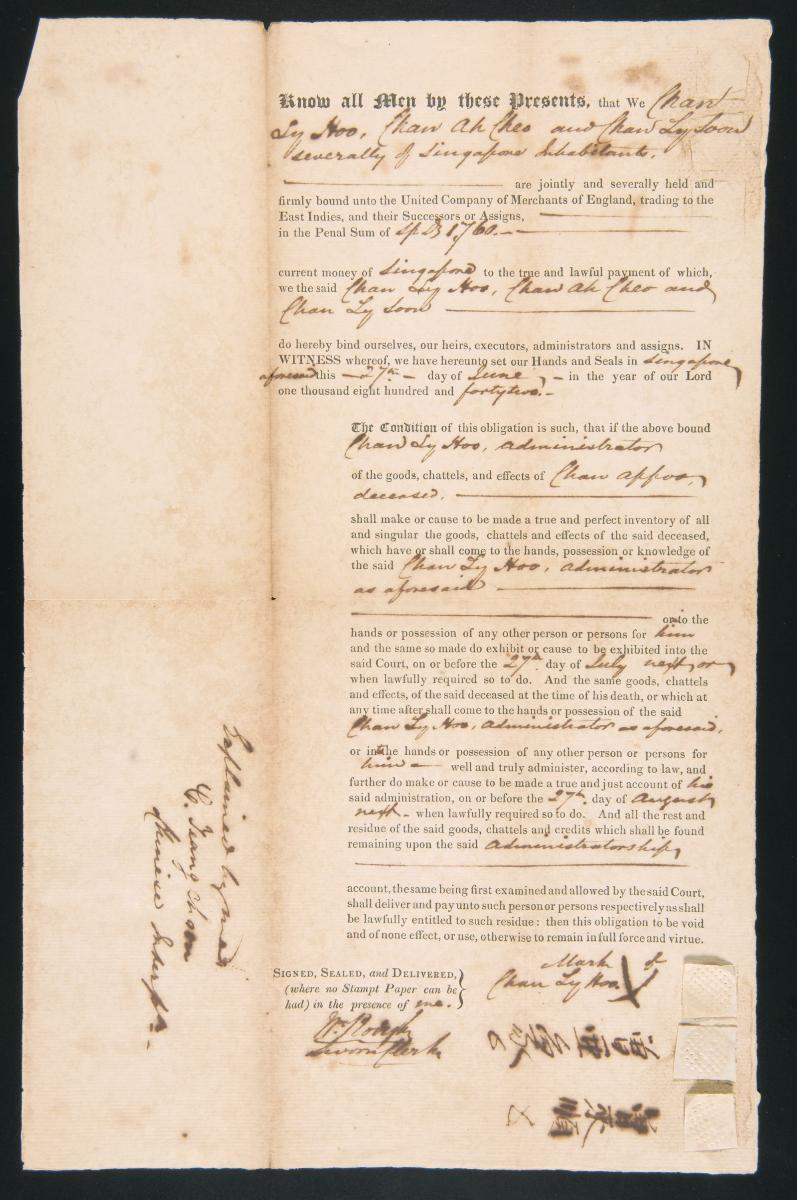 Know all Men by these Presents, that We Chan
Ly Hoo, Chan Ah Cheo and Chan Ly Soon
severally of Singapore Inhabitants.
are jointly and severally held and
firmly bound unto the United Company of Merchants of England, trading to the
East Indies, and their Successors or Assigns,
in the Penal Sum of Sp Ds 1760.-
current money of Singapore to the true and lawful payment of which,
we the said Chan Ly Hoo, Chan Ah Cheo and
Chan Ly Soon
do hereby bind ourselves, our heirs, executors, administrators and assigns. IN
WITNESS whereof, we have hereunto set our Hands and Seals in Singapore
aforesaid this 27th day of June, in the year of our Lord
one thousand eight hundred and fortytwo.-
The Condition of this obligation is such, that if the above bound
Chan Ly Hoo, administrator
of the goods, chattels, and effects of Chan Appoo,
deceased.
shall make or cause to be made a true and perfect inventory of all
and singular the goods, chattels and effects of the said deceased,
which have or shall come to the hands, possession or knowledge of
the said Chan Ly Hoo, administrator
as aforesaid
or into the
hands or possession of any other person or persons for him
and the same so made do exhibit or cause to be exhibited into the
said Court, on or before the 27th day of July next, or
when lawfully required so to do. And the same goods, chattels
and effects, of the said deceased at the time of his death, or which at
any time after shall come to the hands or possession of the said
Chan Ly Hoo, administrator as aforesaid,
or into the hands or possession of any other person or persons for
him well and truly administer, according to law, and
further do make or cause to be made a true and just account of his
said administration, on or before the 27th. day of August
next. when lawfully required so to do. And all the rest and
residue of the said goods, chattels and credits which shall be found
remaining upon the said administratorship,
account, the same being first examined and allowed by the said Court,
shall deliver and pay unto such person or persons respectively as shall
be lawfully entitled to such residue: then this obligation to be void
and of none effect, or use, otherwise to remain in full force and virtue.
SIGNED, SEALED, and DELIVERED,
(where no Stampt Paper can be
had) in the presence of me.
Sworn Clerk
Mark of
Chan Ly Hoo X
Explained by me
Chinese Interptr.